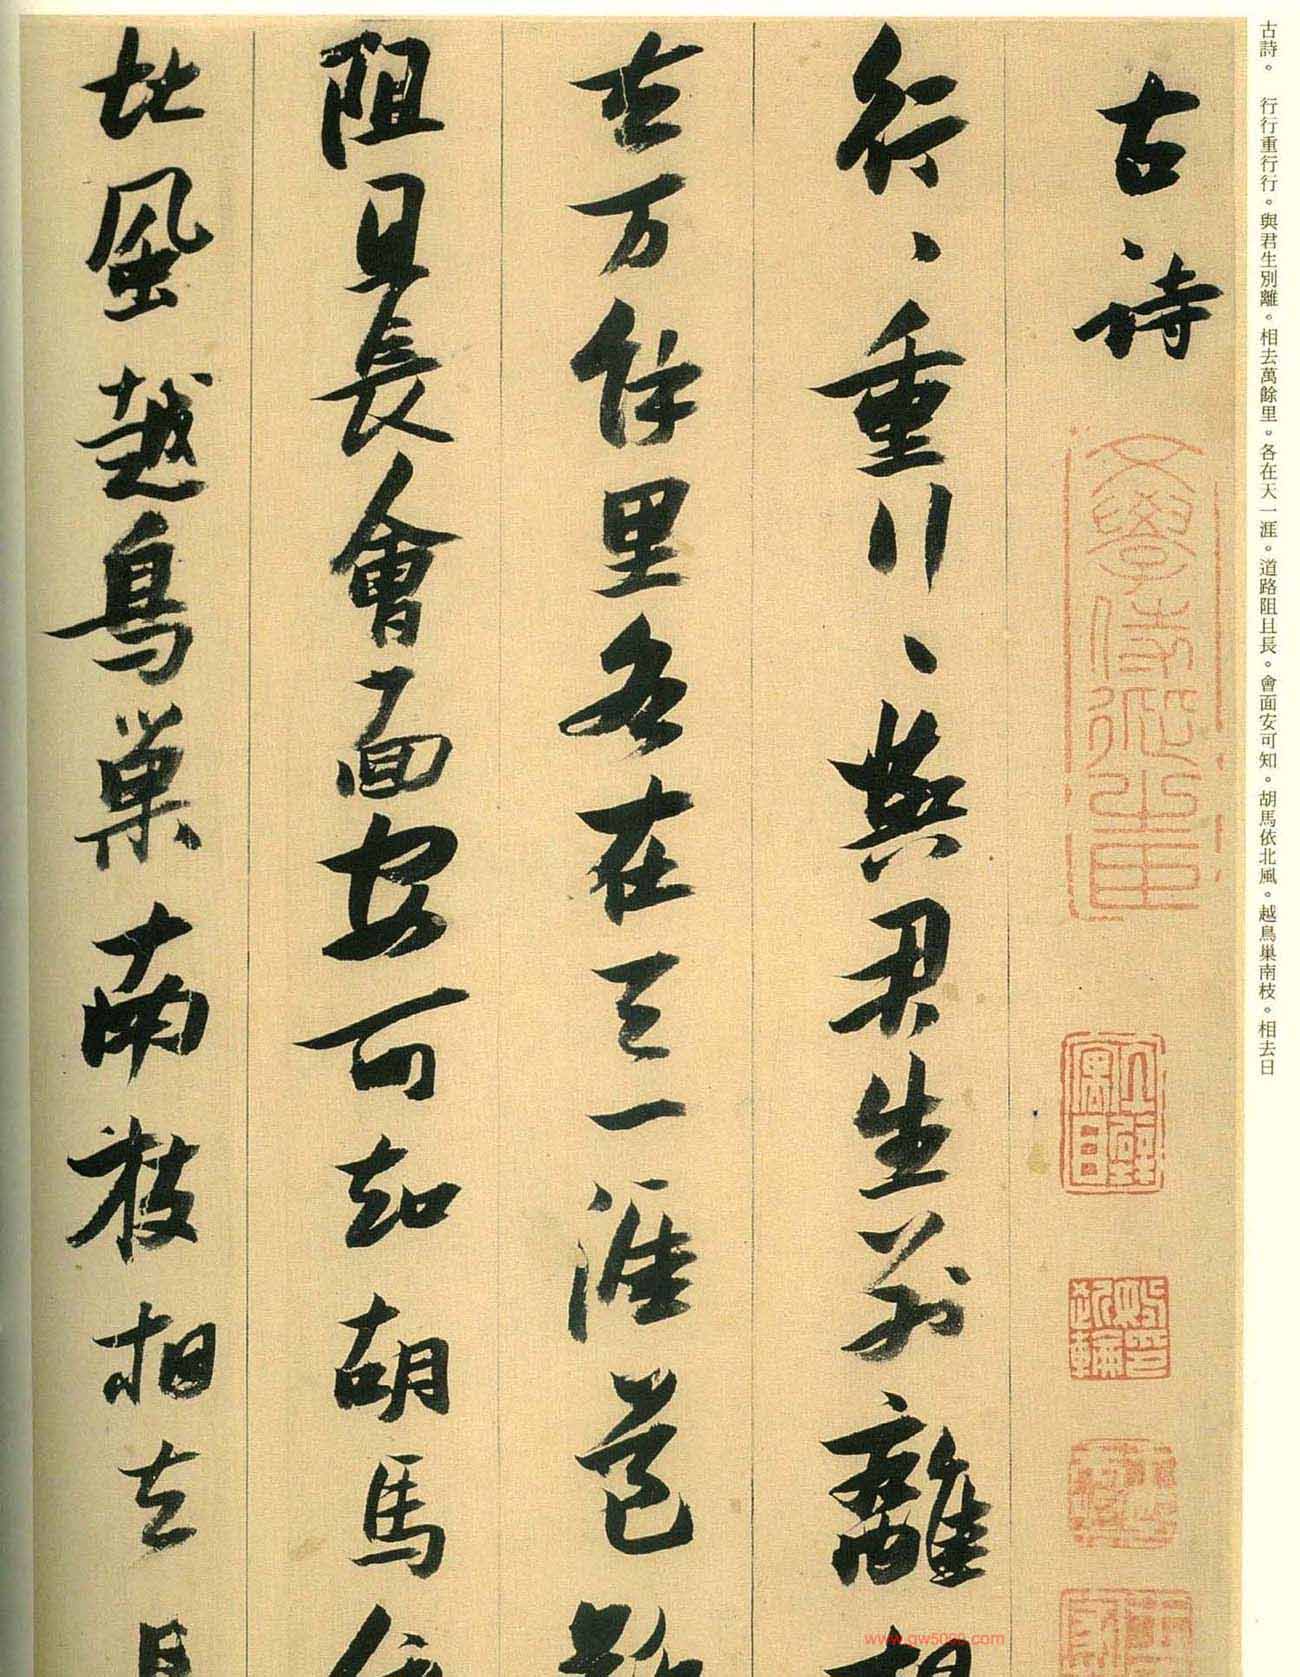 古詩。　行行重行行。與君生別離。相去萬餘里。各在天一涯。道路阻且長。會面安可知。胡馬依北風。越鳥巢南枝。相去日
古詩
行〻重行〻與君生別離相
去万餘里各在天一涯道路
阻且長會面安可知胡馬依
北風越鳥巢南枝相去日
文學侍從之臣
www.gw5000.com